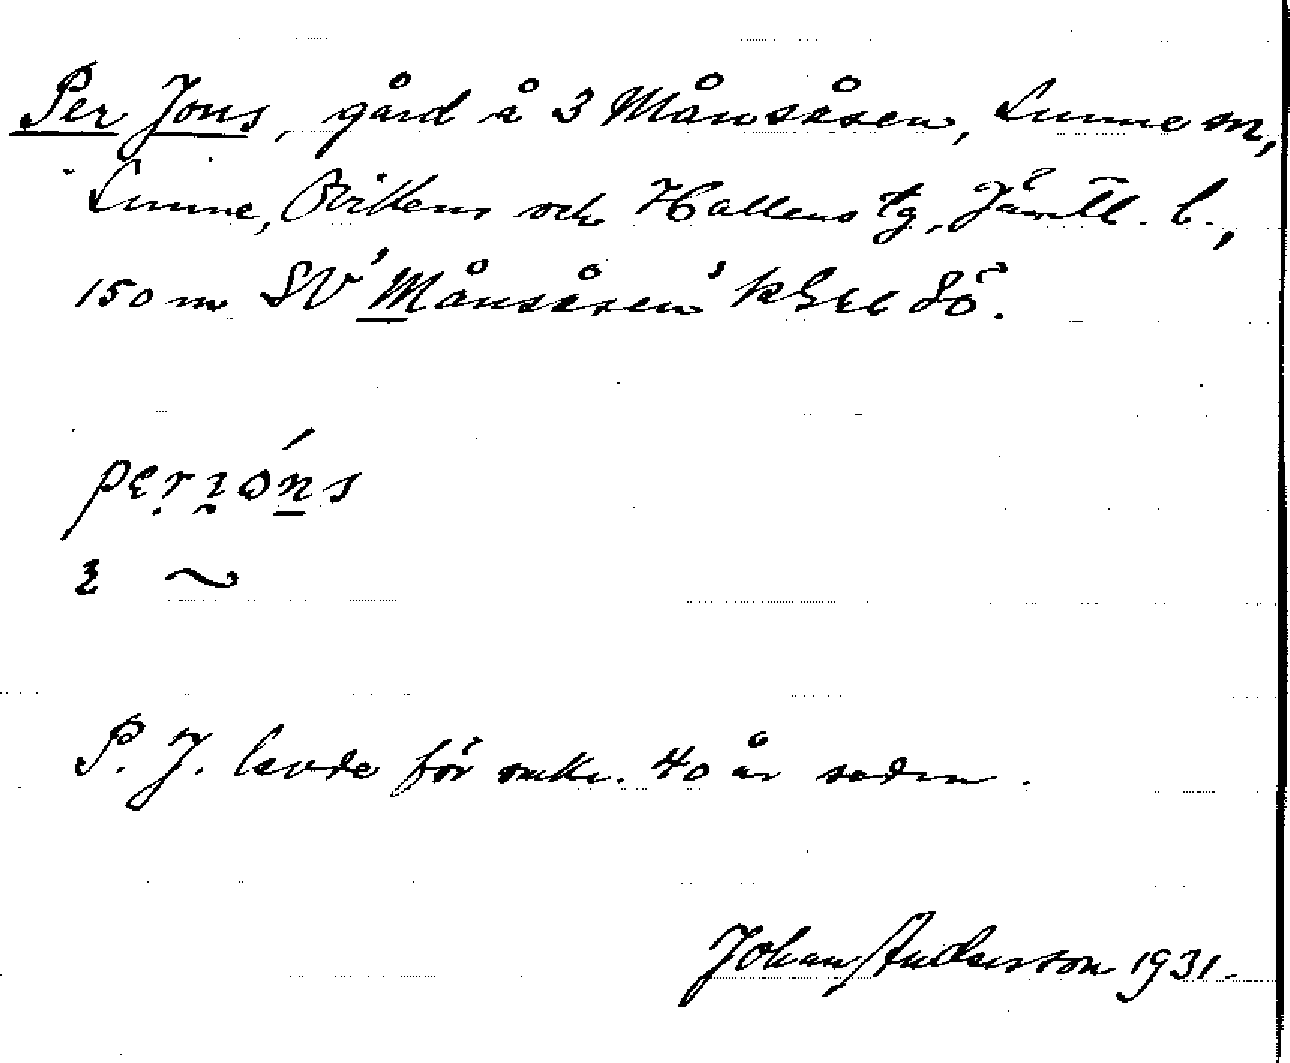 Per Jons, gård å 3 Månsåsen, Sunne sn,
Sunne, Ovikens och Hallens tg, Jämtl. l.,
150 m SV 'Månsåsen' kgrl Sö.
P. J. levde för omkr. 40 år sedan.
Johan Anderson 1931.